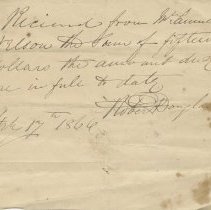 Recieved from Mr Samuel
Nelson the Sum of fifteen
dollars the amount due
me in full to date
Robert
17th 1866